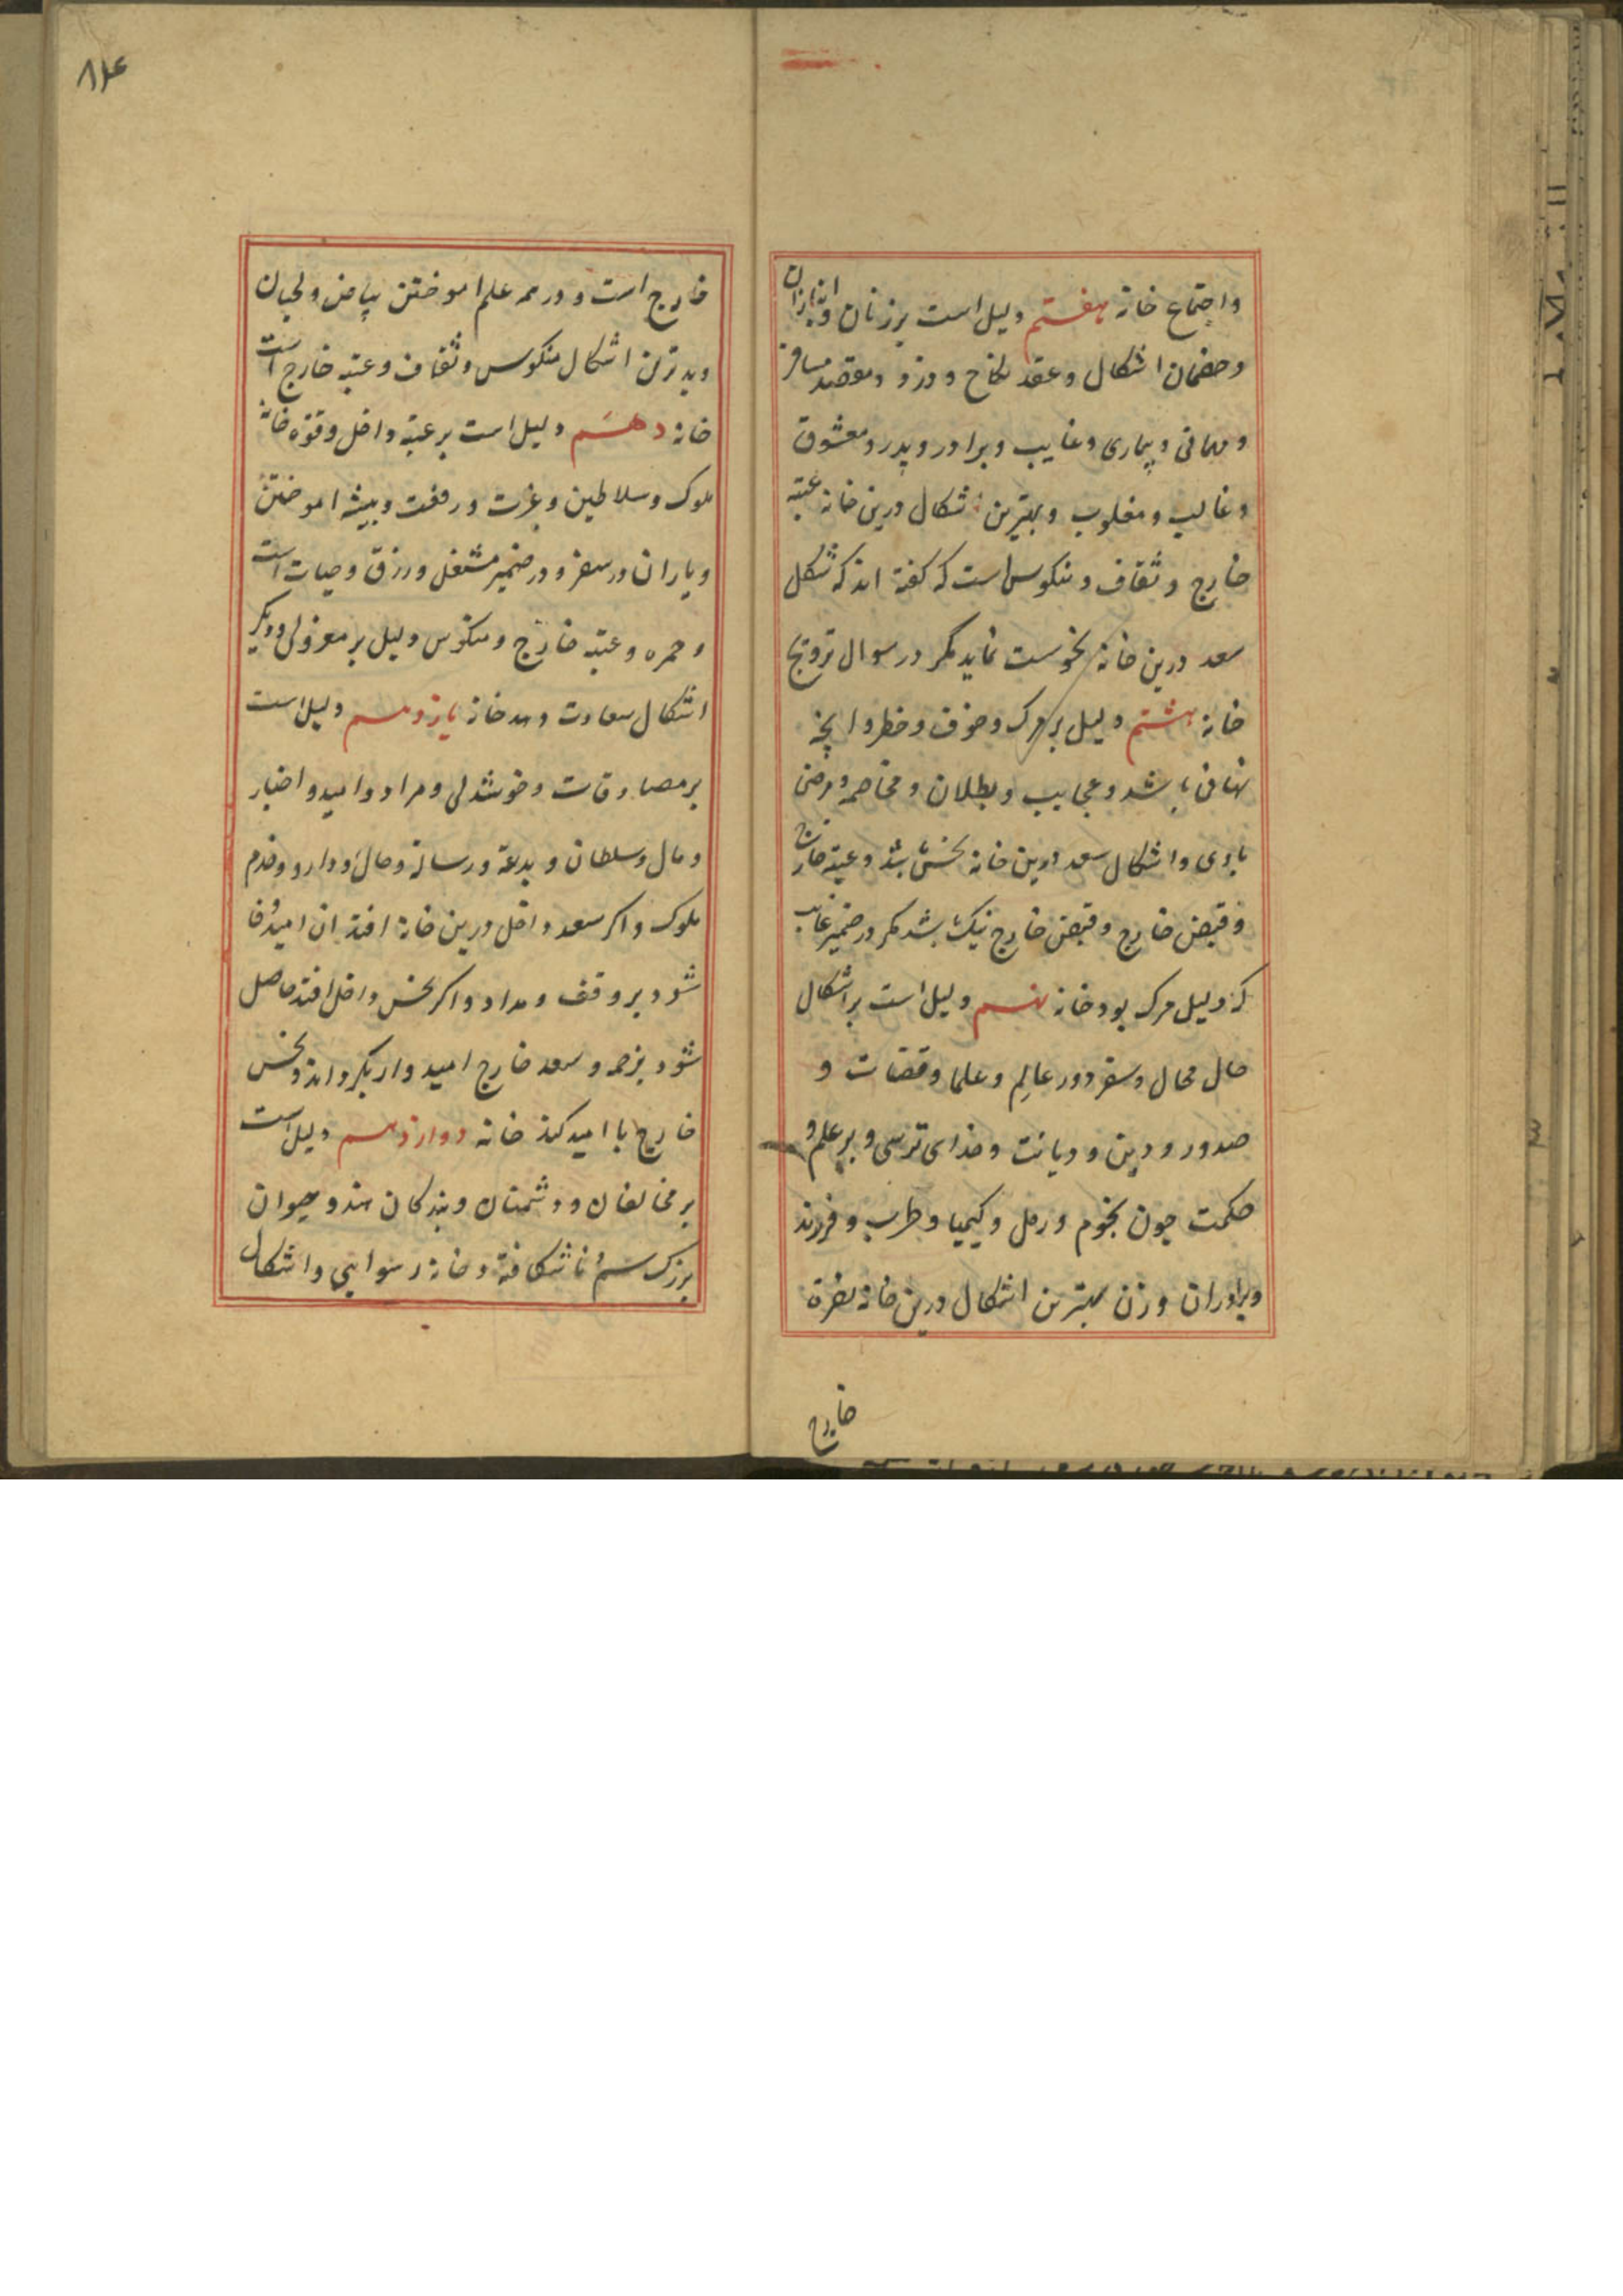 واجتماع خانه هفتم دلیل است بر زنان و انبازان
وخصمان اشکال وعقد نکاح و دزد ومقصد مسافر
ومهمانی وبیماری وغایب وبرادر وپدر ومعشوق
وغالب ومغلوب وبهترین اشکال درین خانه عتبه
خارج وثقاف ومنکوس است که کفته اند که شکل
سعد درین خانه نحوست نماید مکر در سوال تزویج
خانه هشتم دلیل بر مرک وخوف وخطر وانچه
نهانی باشد وعجایب وبطلان ومخاصمه ومرض
بادی واشکال سعد درین خانه نحس باشد وعتبه خارج
وقبض خارج وقبض خارج نیک باشد مکر در ضمیر غایب
که دلیل مرک بود خانه نهم دلیل است بر اشکال
حال محال وسفر دور عالم وعلما وقضات و
صدور ودین ودیانت وخدای ترسی وبر علم و
حکمت چون نجوم ورمل وکیمیا وطرب وفرزند
وبرادران وزن بهترین اشکال درین خانه نصرة
خارج
۸۴
خارج است و در همه علم اموختن بیاض ولحیان
وبدترین اشکال منکوس وثقاف وعتبه خارج است
خانه دهم دلیل است بر عتبه داخل وقوه خانه
ملوک وسلاطین وعزت ورفعت وپیشه اموختن
ویاران در سفر ودر ضمیر مشغل ورزق وحیات است
وحمره وعتبه خارج ومنکوس دلیل بر معزولی ودیکر
اشکال سعادت دهد خانه یازدهم دلیل است
بر مصادقات وخوشدلی ومراد وامید واخبار
ومال وسلطان وبدعة ورسالة وحال ودارو وخدم
ملوک واکر سعد داخل درین خانه افتد ان امید وفا
شود بر وقف ومداد واکر نحس داخل افتد حاصل
شود بزحمه وسعد خارج امیدوار بکرداند ونحس
خارج نا امید کند خانه دوازدهم دلیل است
بر مخالفان ودشمنان وبندکان هند وحیوان
بزرک سم ناشکافته وخانه رسوایی واشکال